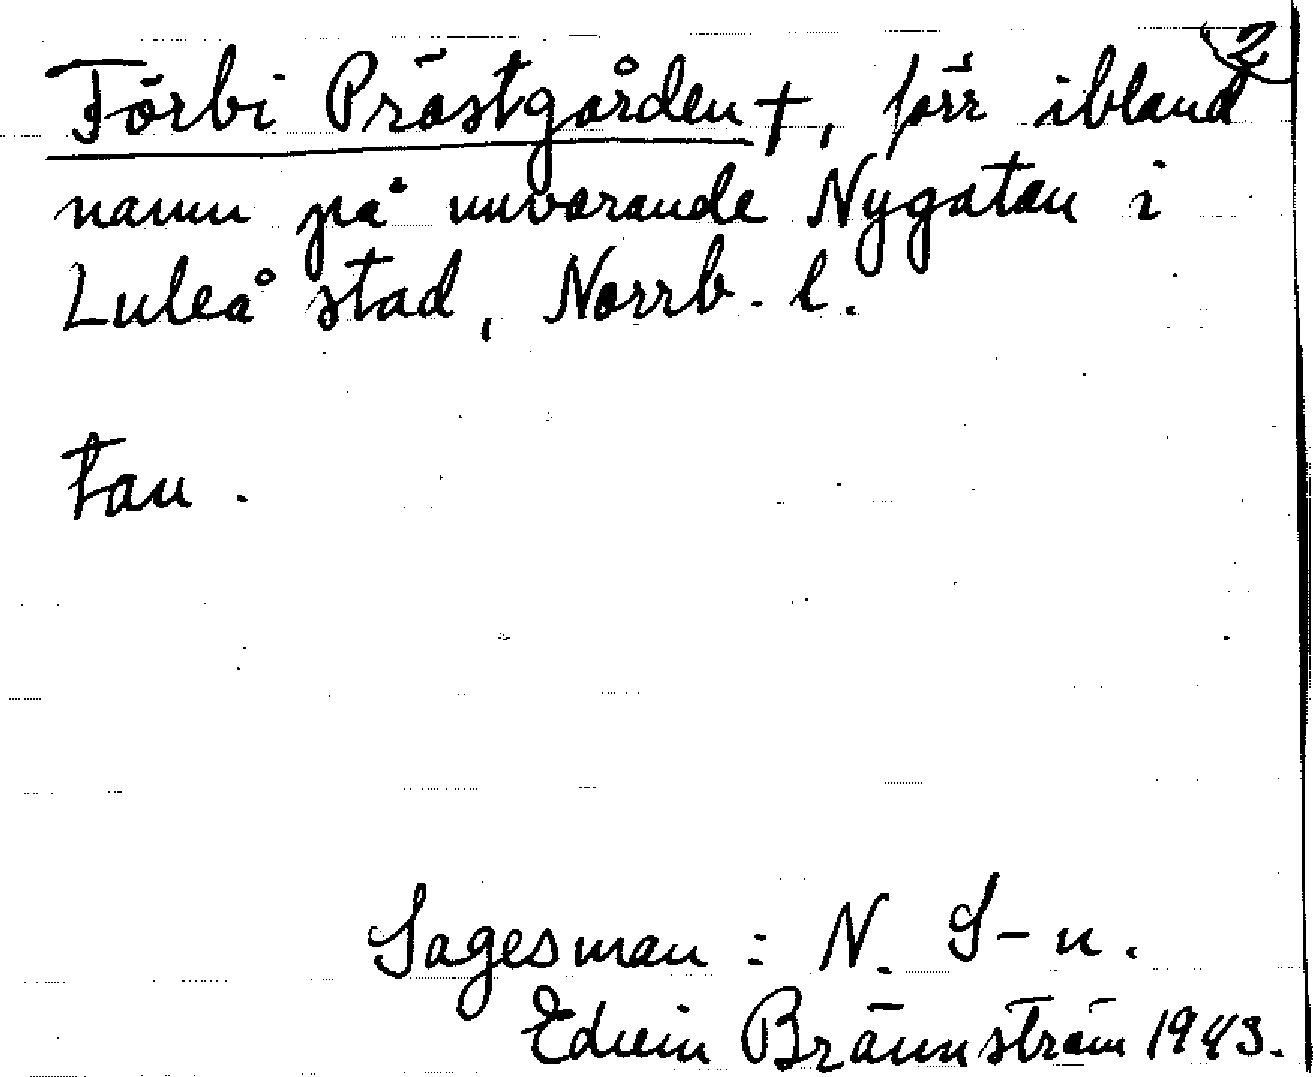 2
Förbi Prästgården †, förr ibland
namn på nuvarande Nygatan i
Luleå stad, Norrb. l.
Tau.
Sagesman: N. S-n.
Edvin Brännström 1943.